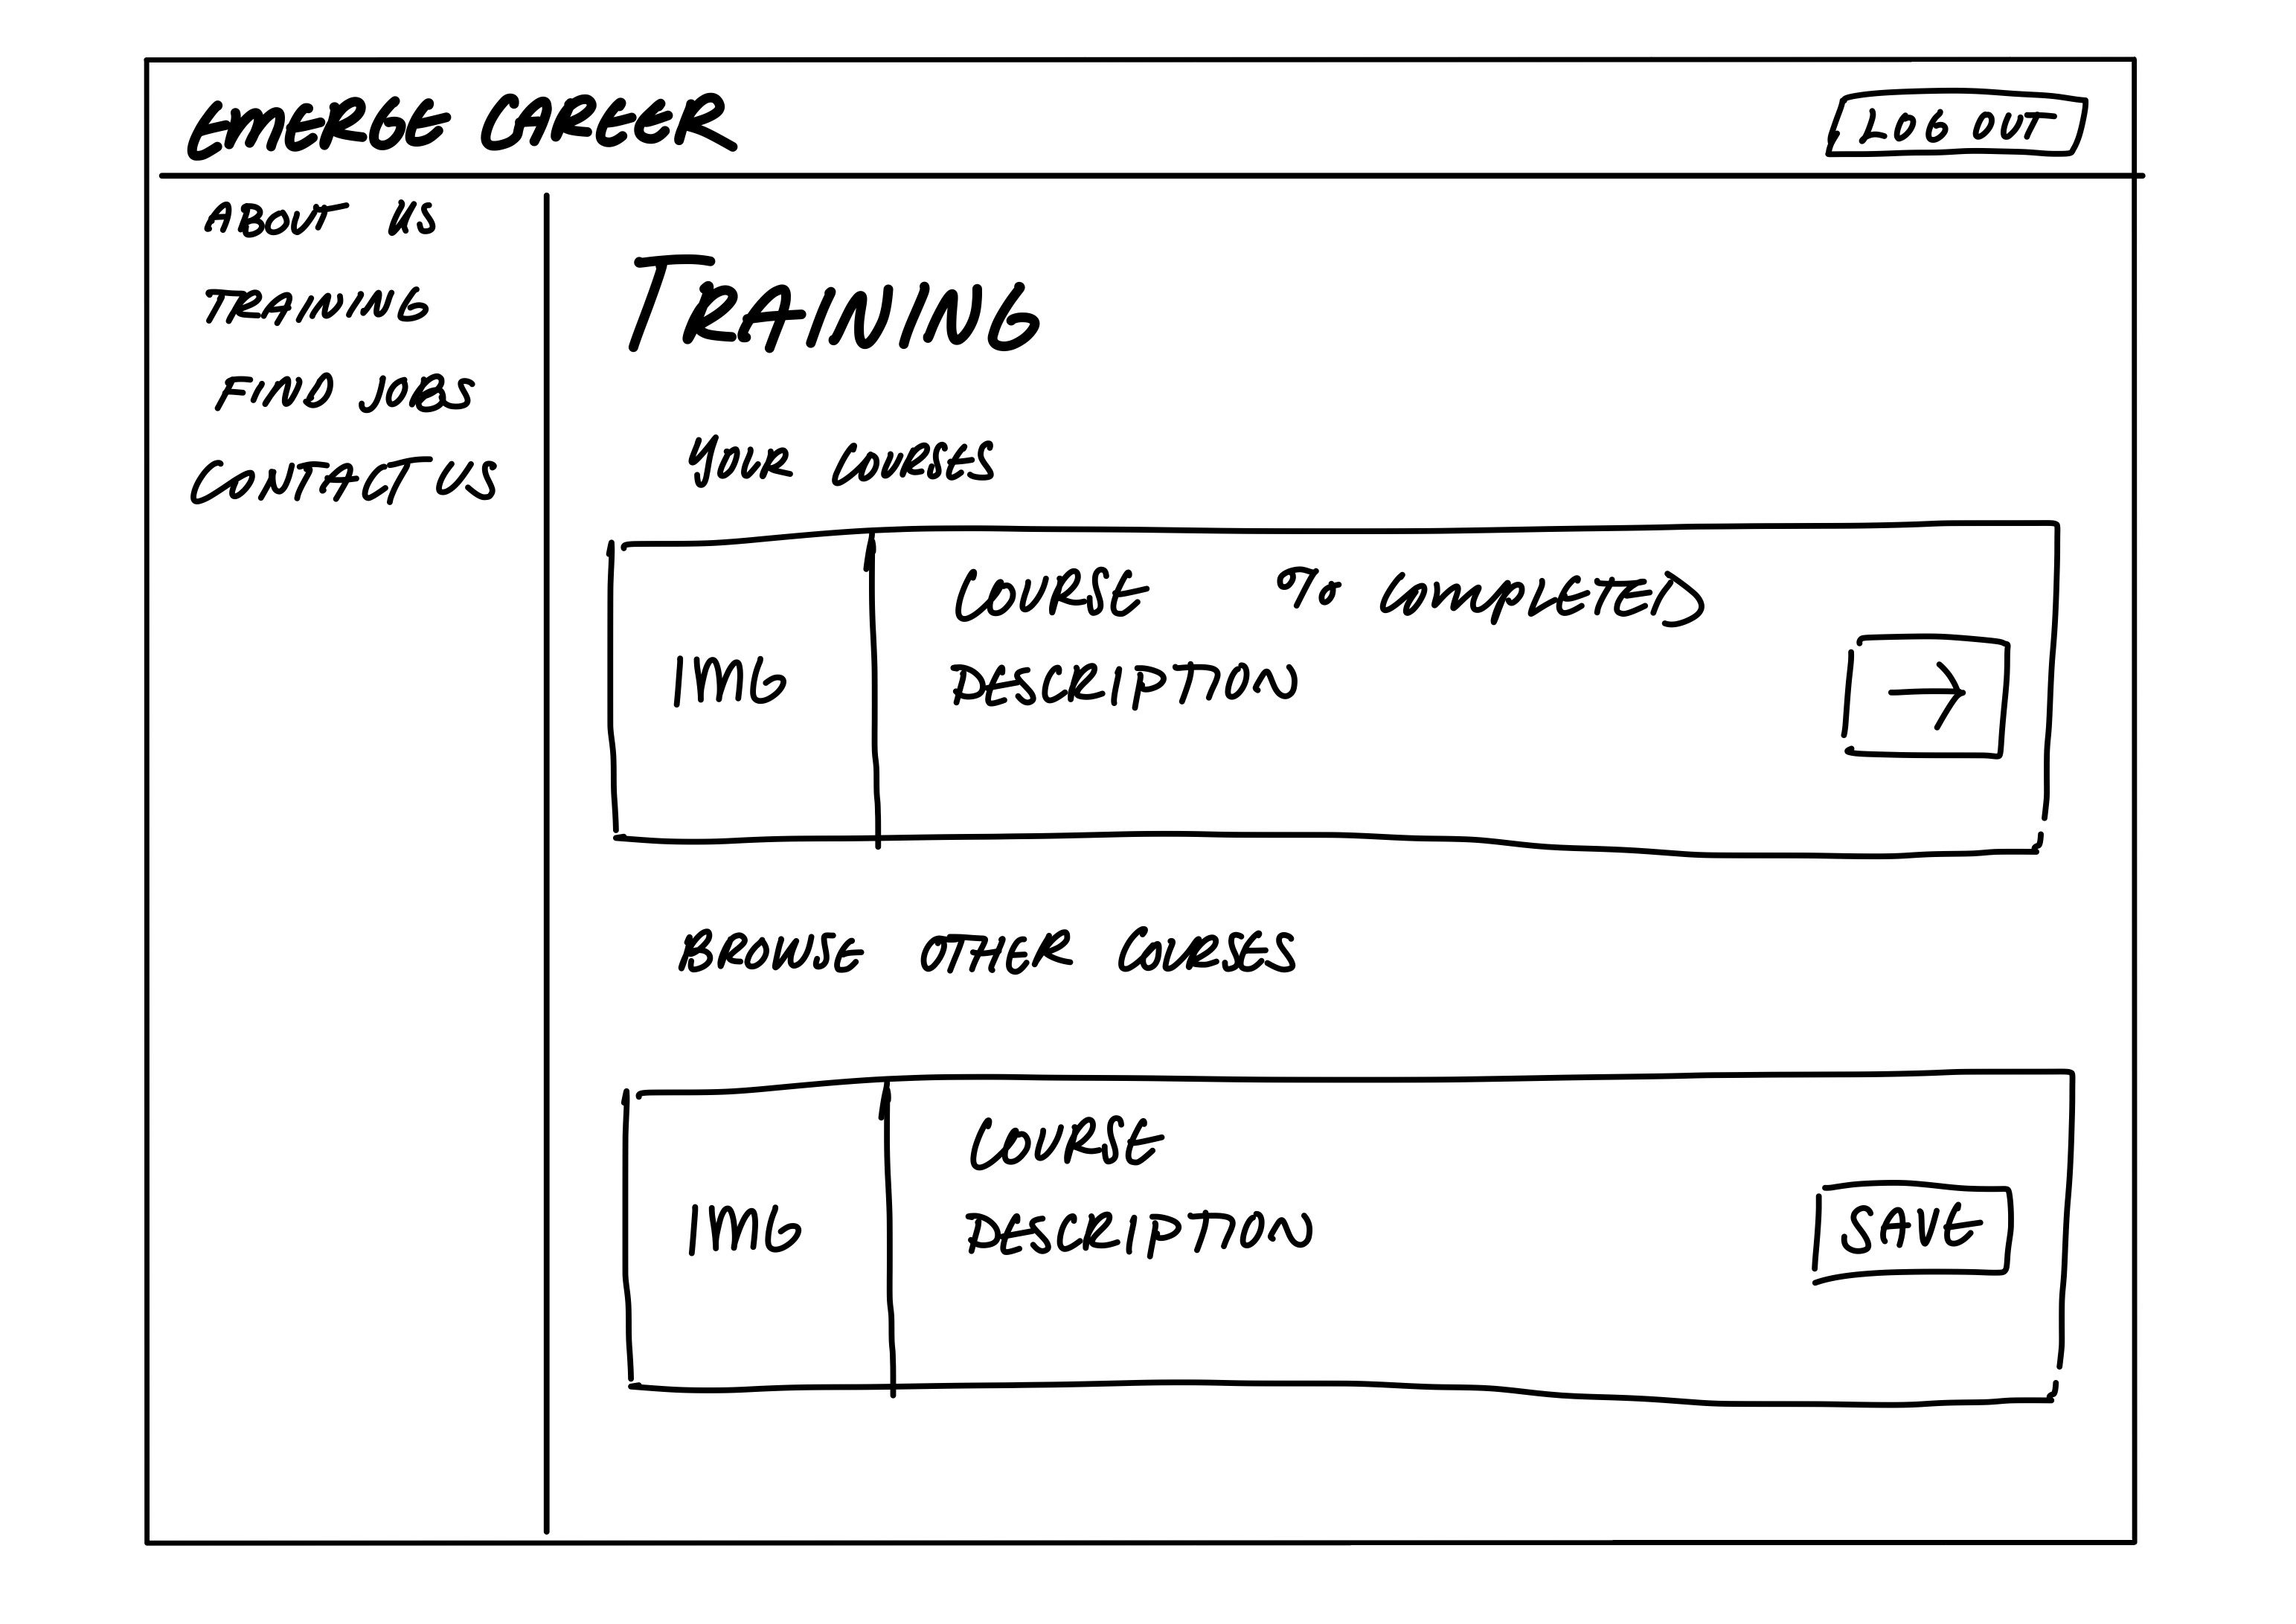 EMERGE CAREER
LOG OUT
ABOUT US
TRAINING
FIND JOBS
CONTACT US
TRAINING
YOUR COURSES
IMG
COURSE % COMPLETED
DESCRIPTION
→
BROWSE OTHER COURSES
IMG
COURSE
DESCRIPTION
SAVE